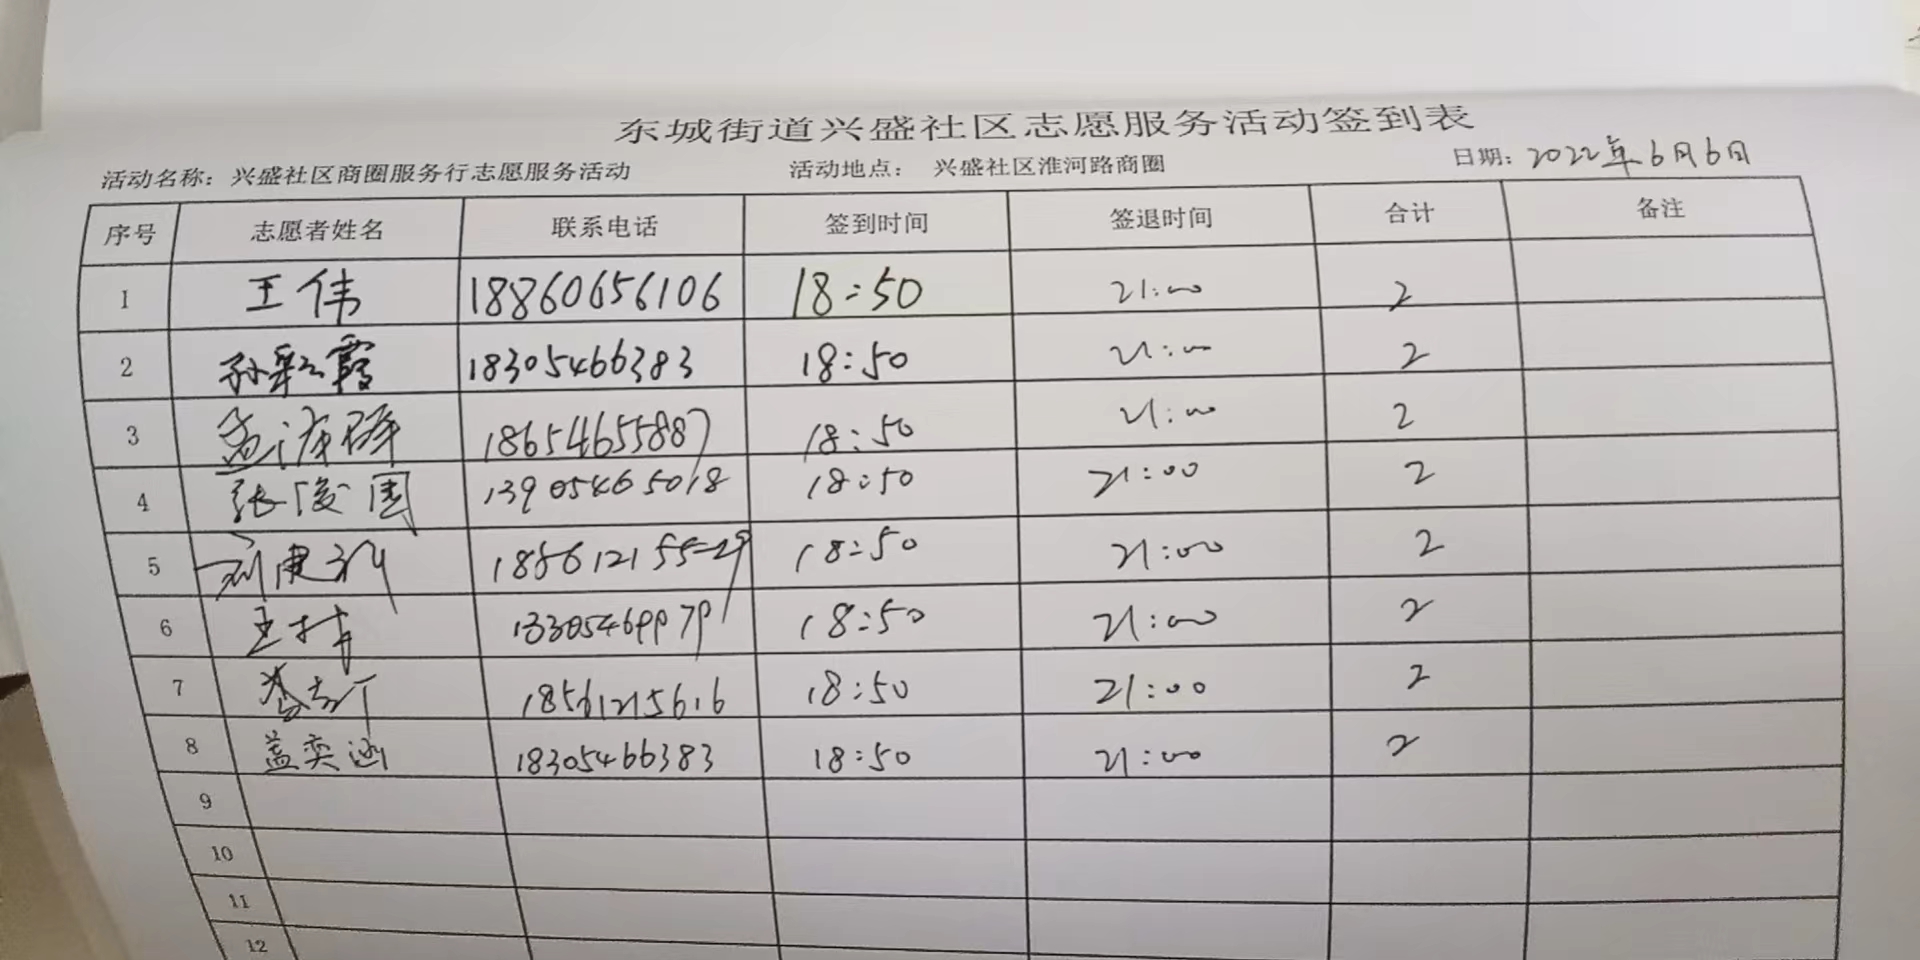 东城街道兴盛社区志愿服务活动签到表
活动名称：兴盛社区商圈服务行志愿服务活动 活动地点： 兴盛社区淮河路商圈 日期：2022年6月6日
序号 志愿者姓名 联系电话 签到时间 签退时间 合计 备注
1 王伟 18860656106 18:50 21:00 2
2 孙彩霞 18305466383 18:50 21:00 2
3 18654655887 18:50 21:00 2
4 张俊国 13905465018 18:50 21:00 2
5 18:50 21:00 2
6 18:50 21:00 2
7 18561215616 18:50 21:00 2
8 盖奕涵 18305466383 18:50 21:00 2
9
10
11
12